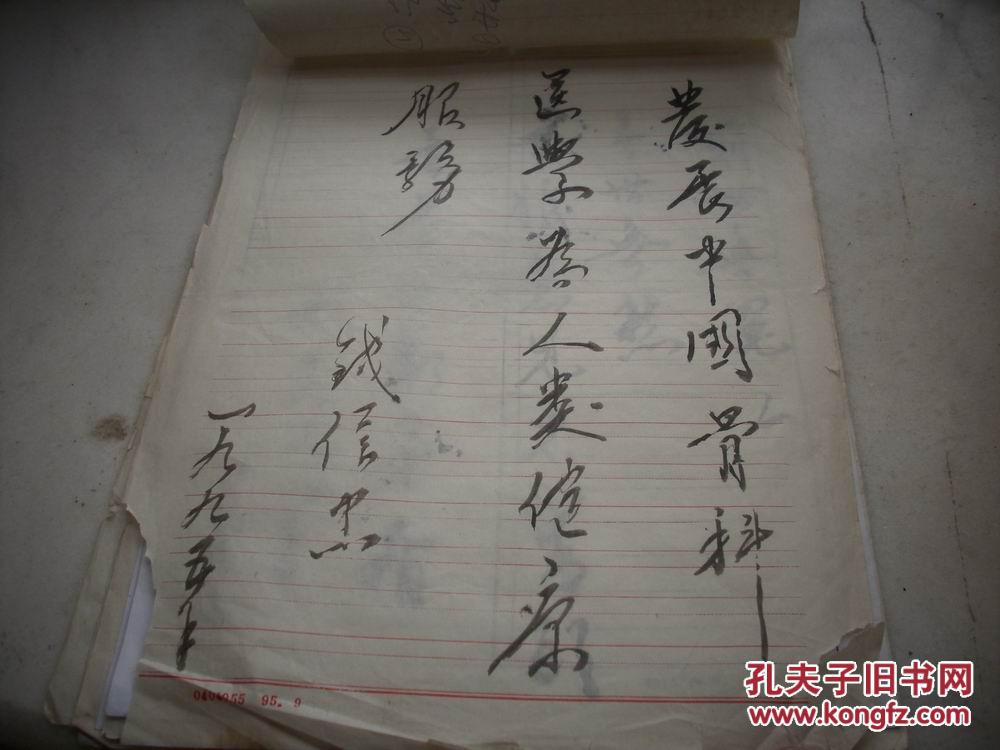 發展中國骨科
医學為人类健康
服務
钱信忠
一九九五年
0404055 95.9
孔夫子旧书网
www.kongfz.com